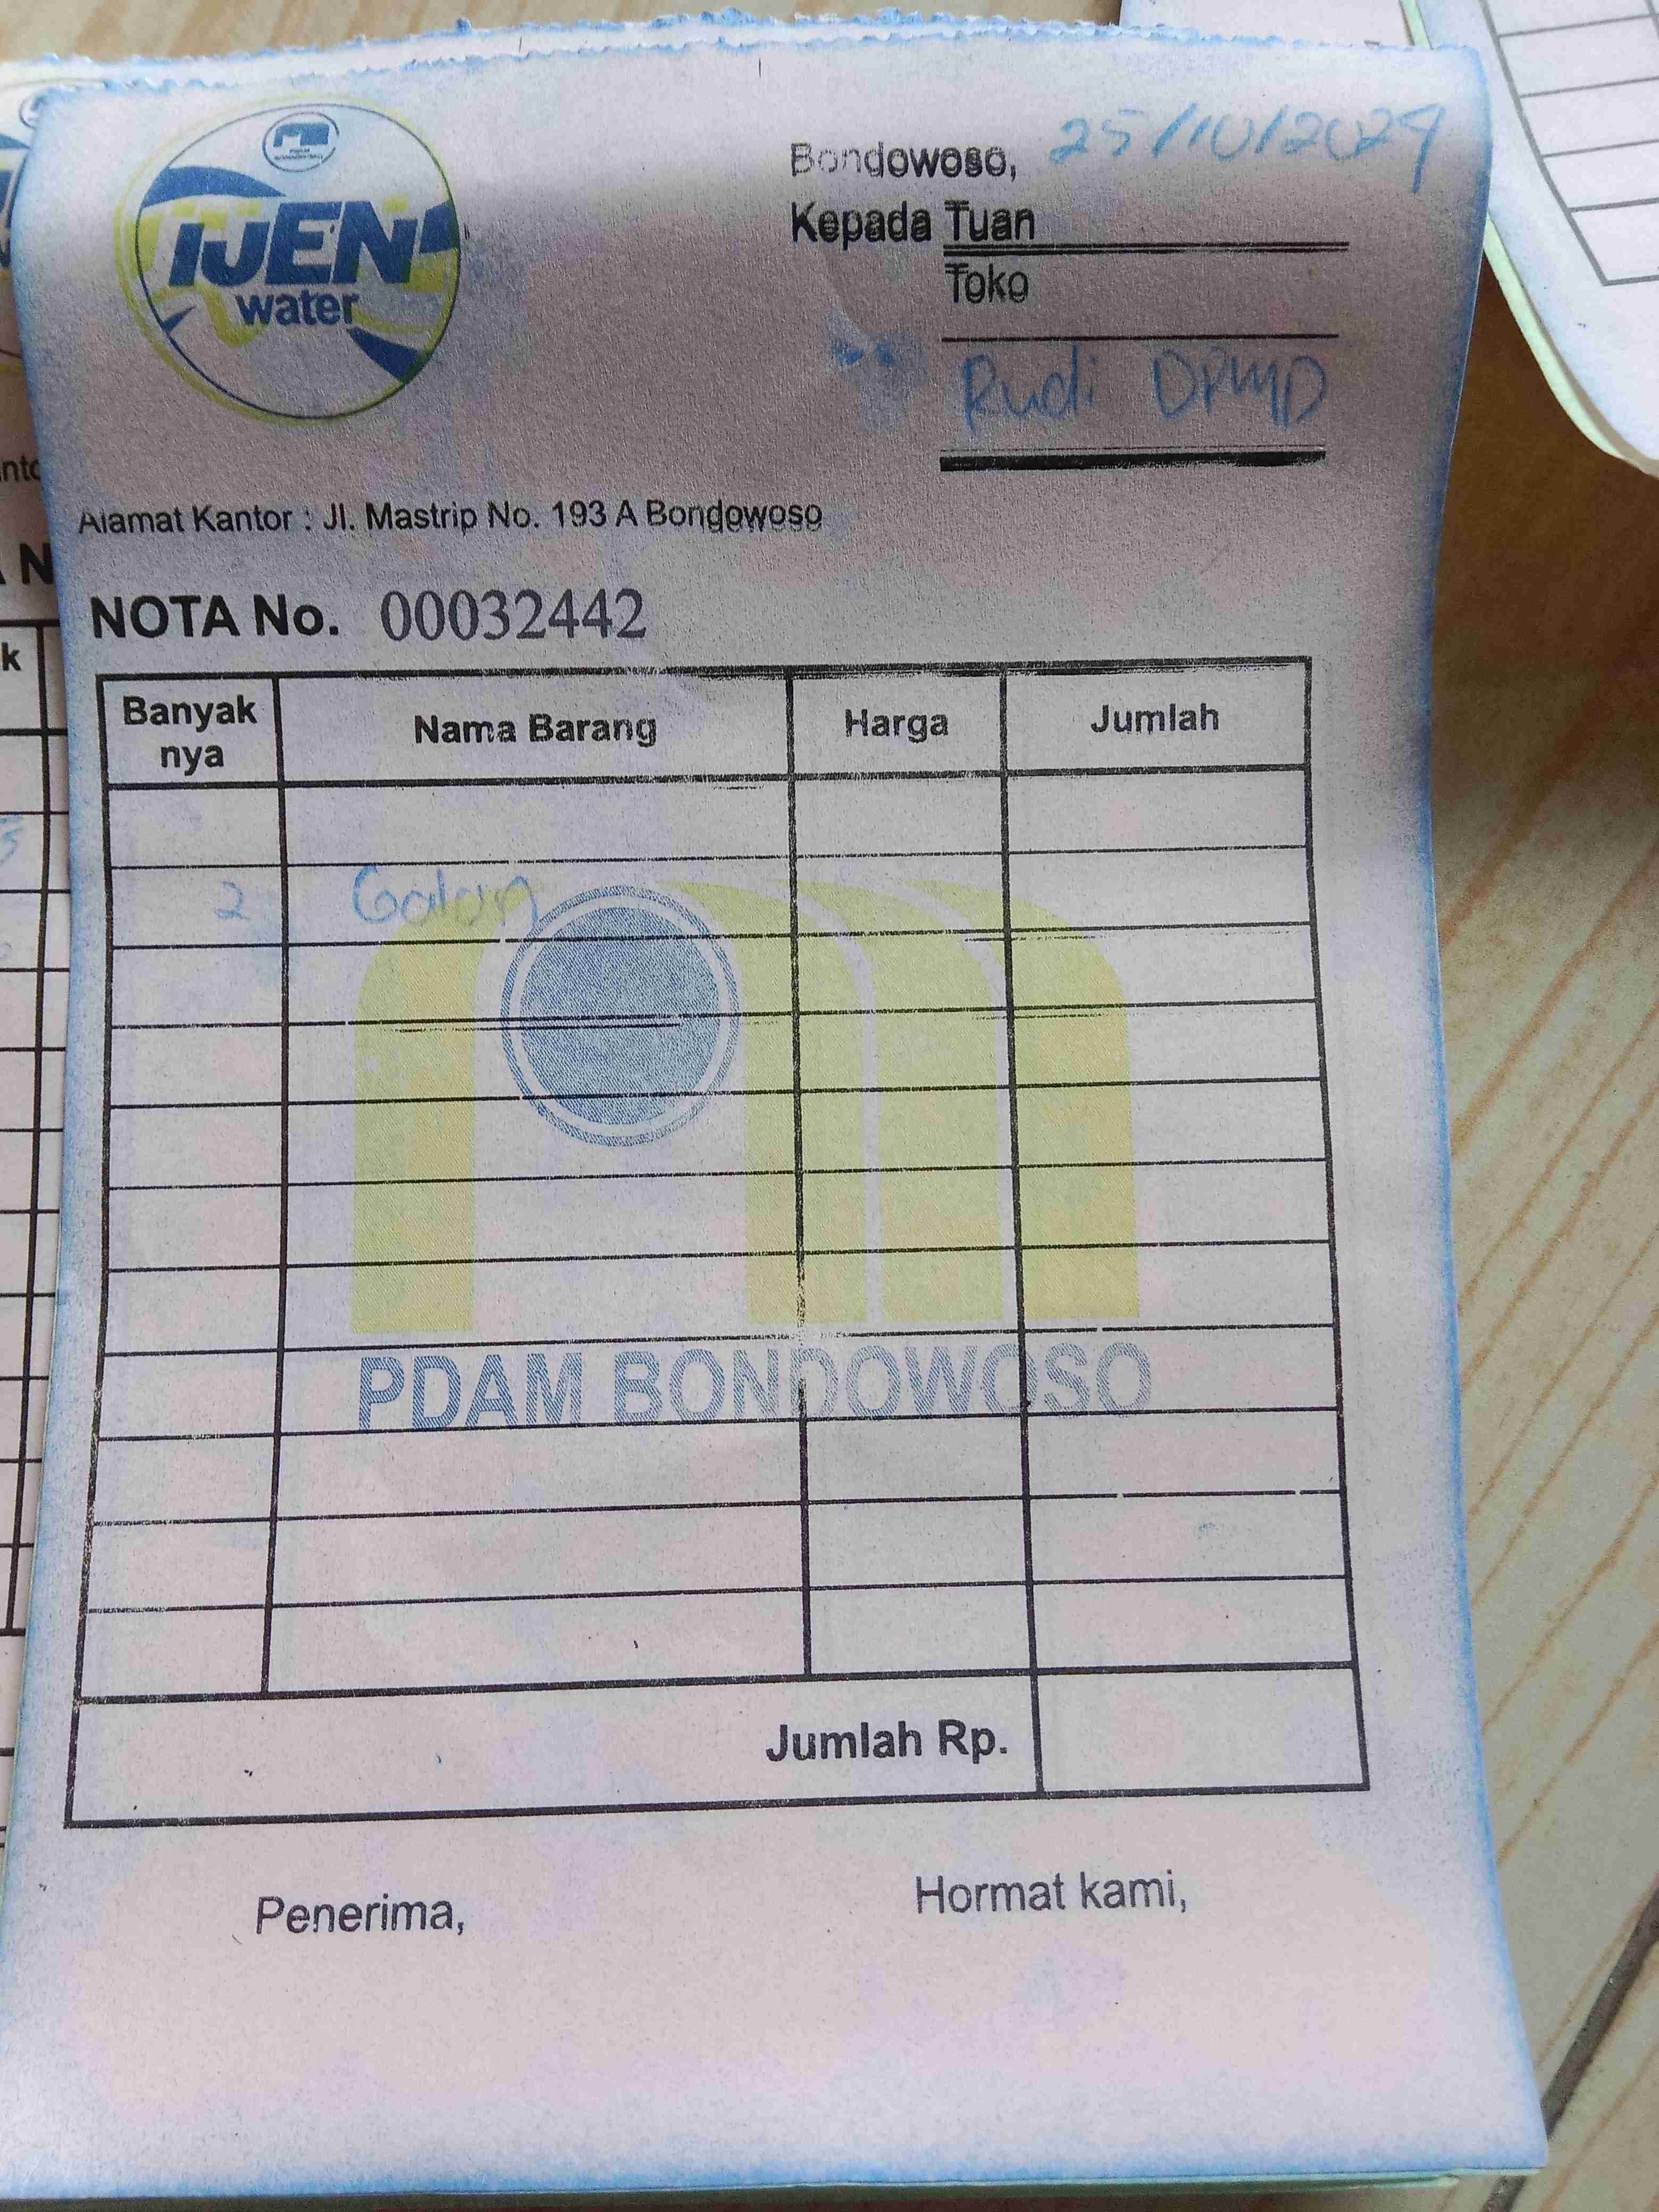 IJEN
water
Bondowoso, 25/10/2024
Kepada Tuan
Toko
Rudi DPMD
Alamat Kantor : Jl. Mastrip No. 193 A Bondowoso
NOTA No. 00032442
Banyak nya Nama Barang Harga Jumlah
2 Galon
PDAM BONDOWOSO
Jumlah Rp.
Penerima, Hormat kami,